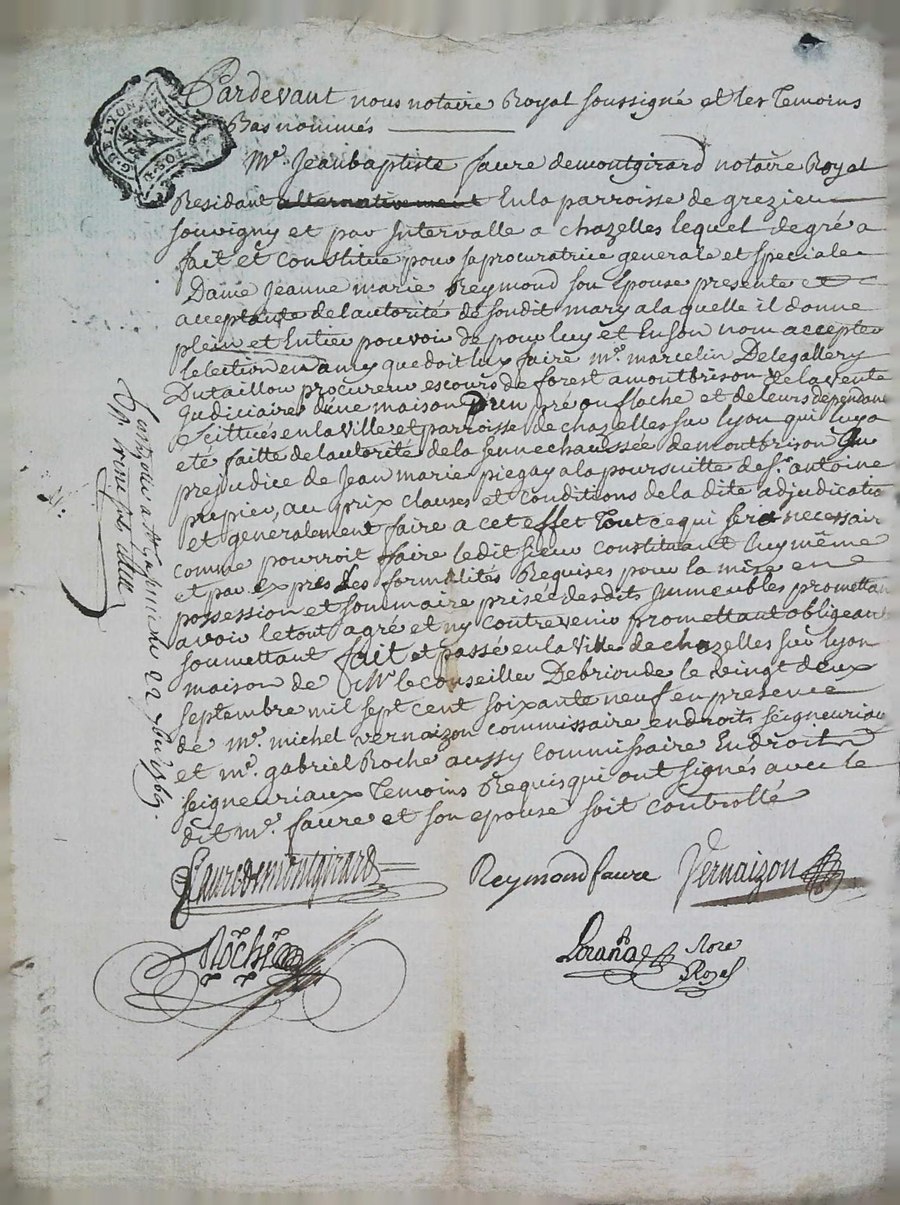 G. DE LYON
Pardevant nous notaire Royal soussigné et les Temoins
Bas nommés
Mr. Jeanbaptiste faure demontgirard notaire Royal
Residant alternativement En la parroisse de grezieu
souvigny et par Intervalle a chazelles lequel degré a
fait et constitué pour sa procuratrice generale et speciale
Dame Jeanne marie Reymond son Epouse presente et
acceptante de lautorité de sondit mary a laquelle il donne
plein et Entier pouvoir de pour luy et En son nom accepter
lelection en amy que doit luy faire me. marcelin Delegallery
Dutaillou procureur es cours de forest a montbrison de la vente
Judiciaire dune maison Dun pré ou floche et de leurs dependan
scittués en la ville et parroisse de chazelles sur lyon qui luy a
eté faitte de lautorité de la sennechaussée de montbrison au
prejudice de Jean marie piegay a la poursuitte de sr. antoine
prepier, au prix clauses et conditions de la dite adjudicatio
et generalement faire a cet effet Tout ce qui sera necessair
comme pourroit faire ledit sieur constituant luy même
et par exprès Les formalités Requises pour la mise en
possession et sommaire prisée desdits Immeubles promettan
avoir le tout agré et ny contrevenir promettant obligeant
soumettant fait et passé en la Ville de chazelles sur lyon
maison de Mr. le conseiller Debrionde le vingt deux
septembre mil sept cent soixante neuf en presence
de me. michel vernaizon commissaire en droits seigneuriau
et me. gabriel Roche aussy Commissaire En droits
seigneuriaux Temoins Requis qui ont signés avec le
dit me. faure et son epouse soit controllé
Faure demontgirard
Reymond faure
Vernaizon
Roche
Nore
Royal